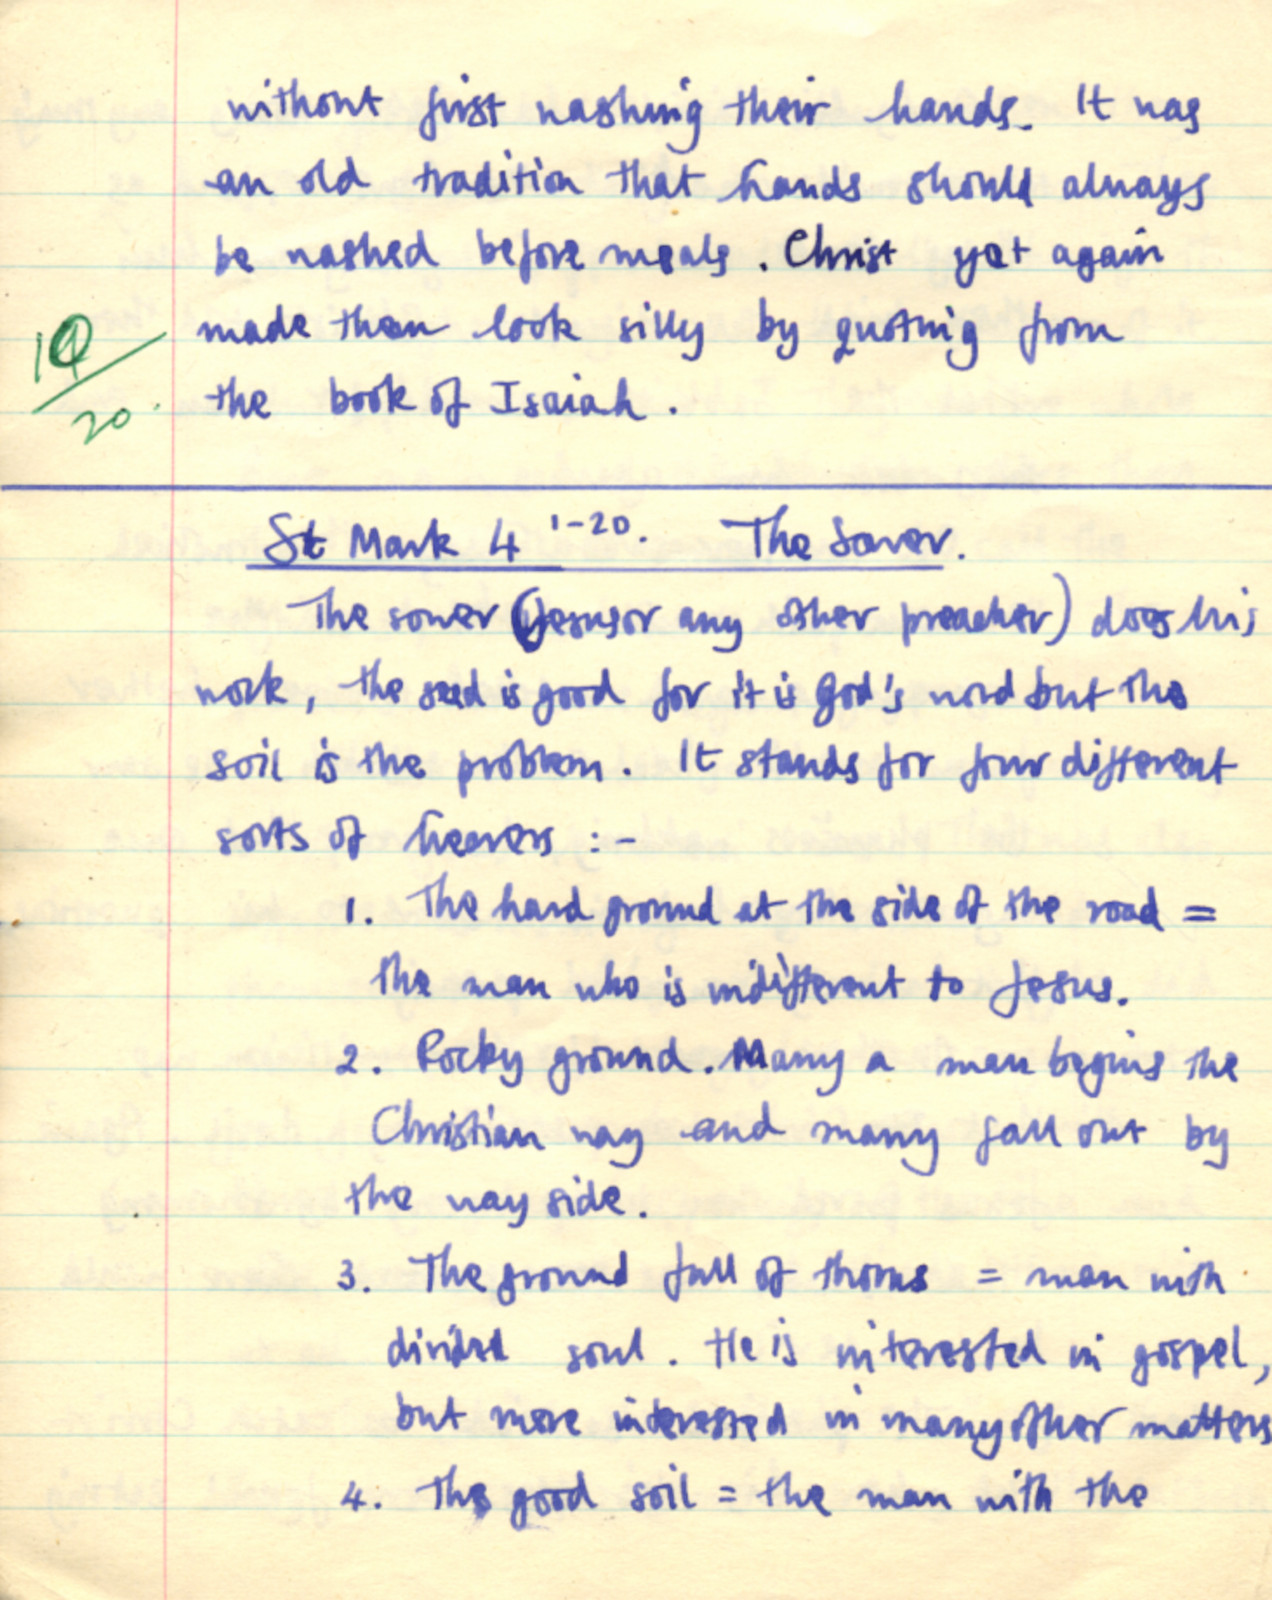 without first washing their hands. It was
an old tradition that hands should always
be washed before meals. Christ yet again
made them look silly by quoting from
the book of Isaiah.
20
St Mark 4 1-20. The Sower.
The sower (Jesus or any other preacher) does his
work, the seed is good for it is God's word but the
soil is the problem. It stands for four different
sorts of hearers :-
1. The hard ground at the side of the road =
the man who is indifferent to Jesus.
2. Rocky ground. Many a man begins the
Christian way and many fall out by
the way side.
3. The ground full of thorns = man with
divided soul. He is interested in gospel,
but more interested in many other matters
4. The good soil = the man with the